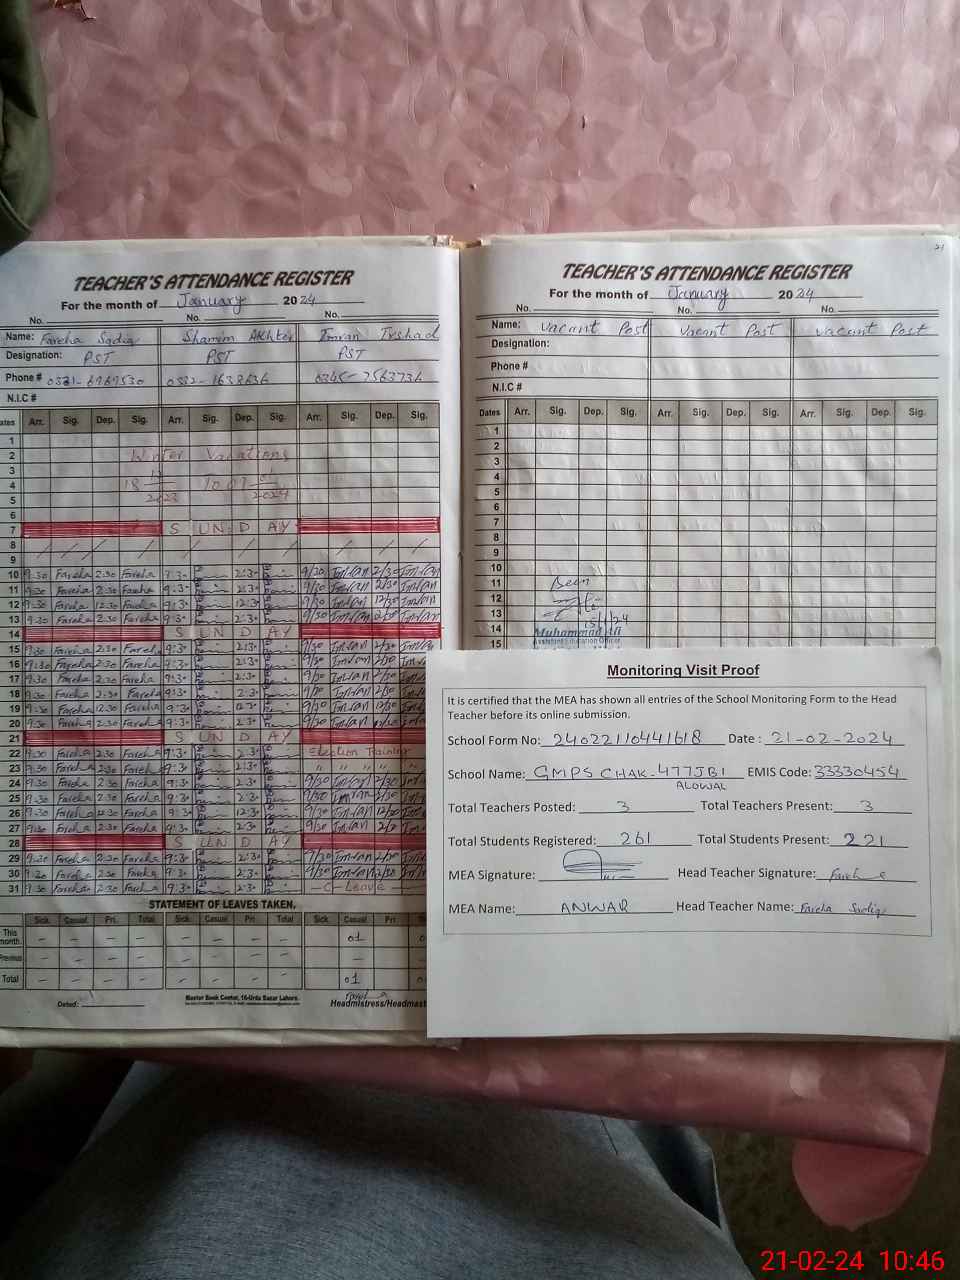 TEACHER'S ATTENDANCE REGISTER
For the month of January 2024
No. No. No.
Name: Fareha Sadiq Shamim Akhter Imran Irshad
Designation: PST PST PST
Phone #
N.I.C #
Dates Arr. Sig. Dep. Sig. Arr. Sig. Dep. Sig. Arr. Sig. Dep. Sig.
1
2 Winter Vacations
3
4
5
6
7 SUNDAY
8
9
10 9:30 Fareha 2:30 Fareha 9:30 2:30 9/30 Imran 2/30 Imran
11 9:30 Fareha 2:30 Fareha 9:30 2:30 9/30 Imran 2/30 Imran
12 9:30 Fareha 12:30 Fareha 9:30 12:30 9/30 Imran 12/30 Imran
13 9:30 Fareha 2:30 Fareha 9:30 2:30 9/30 Imran 2/30 Imran
14 SUNDAY
15 9:30 Fareha 2:30 Fareha 9:30 2:30 9/30 Imran 2/30
16 9:30 Fareha 2:30 Fareha 9:30 2:30 9/30 Imran 2/30
17 9:30 Fareha 2:30 Fareha 9:30 2:30 9/30 Imran 2/30
18 9:30 Fareha 2:30 Fareha 9:30 2:30 9/30 Imran 2/30
19 9:30 Fareha 12:30 Fareha 9:30 9/30 Imran
20 9:30 Fareha 2:30 Fareha 9:30 2:30 9/30 Imran
21 SUNDAY
22 9:30 Fareha 2:30 Fareha 9:30 2:30 Election Training
23 9:30 Fareha 2:30 Fareha 9:30 2:30 " " " " "
24 9:30 Fareha 2:30 Fareha 9:30 2:30 9/30 Imran 2/30
25 9:30 Fareha 2:30 Fareha 9:30 2:30 9/30 Imran 2/30
26 9:30 Fareha 12:30 Fareha 9:30 12:30 9/30 Imran 12/30
27 9:30 Fareha 2:30 Fareha 9:30 2:30 9/30 Imran 2/30
28 SUNDAY
29 9:30 Fareha 2:30 Fareha 9:30 2:30 9/30 Imran 2/30
30 9:30 Fareha 2:30 Fareha 9:30 2:30 9/30 Imran 2/30
31 9:30 Fareha 2:30 Fareha 9:30 2:30 — C-Leave —
STATEMENT OF LEAVES TAKEN.
Sick. Casual. Pri. Total Sick. Casual. Pri Total Sick. Casual. Pri.
This month. – – – – – – – – 01
Previous – – – – – – – – –
Total – – – – – – – – 01
Dated:
Master Book Center, 16-Urdu Bazar Lahore.
Headmistress/Headmast
21
TEACHER'S ATTENDANCE REGISTER
For the month of January 2024
No. No. No.
Name: Vacant Post Vacant Post Vacant Post
Designation:
Phone #
N.I.C #
Dates Arr. Sig. Dep. Sig. Arr. Sig. Dep. Sig. Arr. Sig. Dep. Sig.
1
2
3
4
5
6
7
8
9
10
11 Seen
12
13
14
15
Muhammad Ali
Assistant Education Officer
Monitoring Visit Proof
It is certified that the MEA has shown all entries of the School Monitoring Form to the Head
Teacher before its online submission.
School Form No: 24022110441618 Date : 21-02-2024
School Name: GMPS CHAK-477JB1 EMIS Code: 33330454
ALOWAL
Total Teachers Posted: 3 Total Teachers Present: 3
Total Students Registered: 261 Total Students Present: 221
MEA Signature: Head Teacher Signature: Fareha
MEA Name: ANWAR Head Teacher Name: Fareha Sadiq
21-02-24 10:46